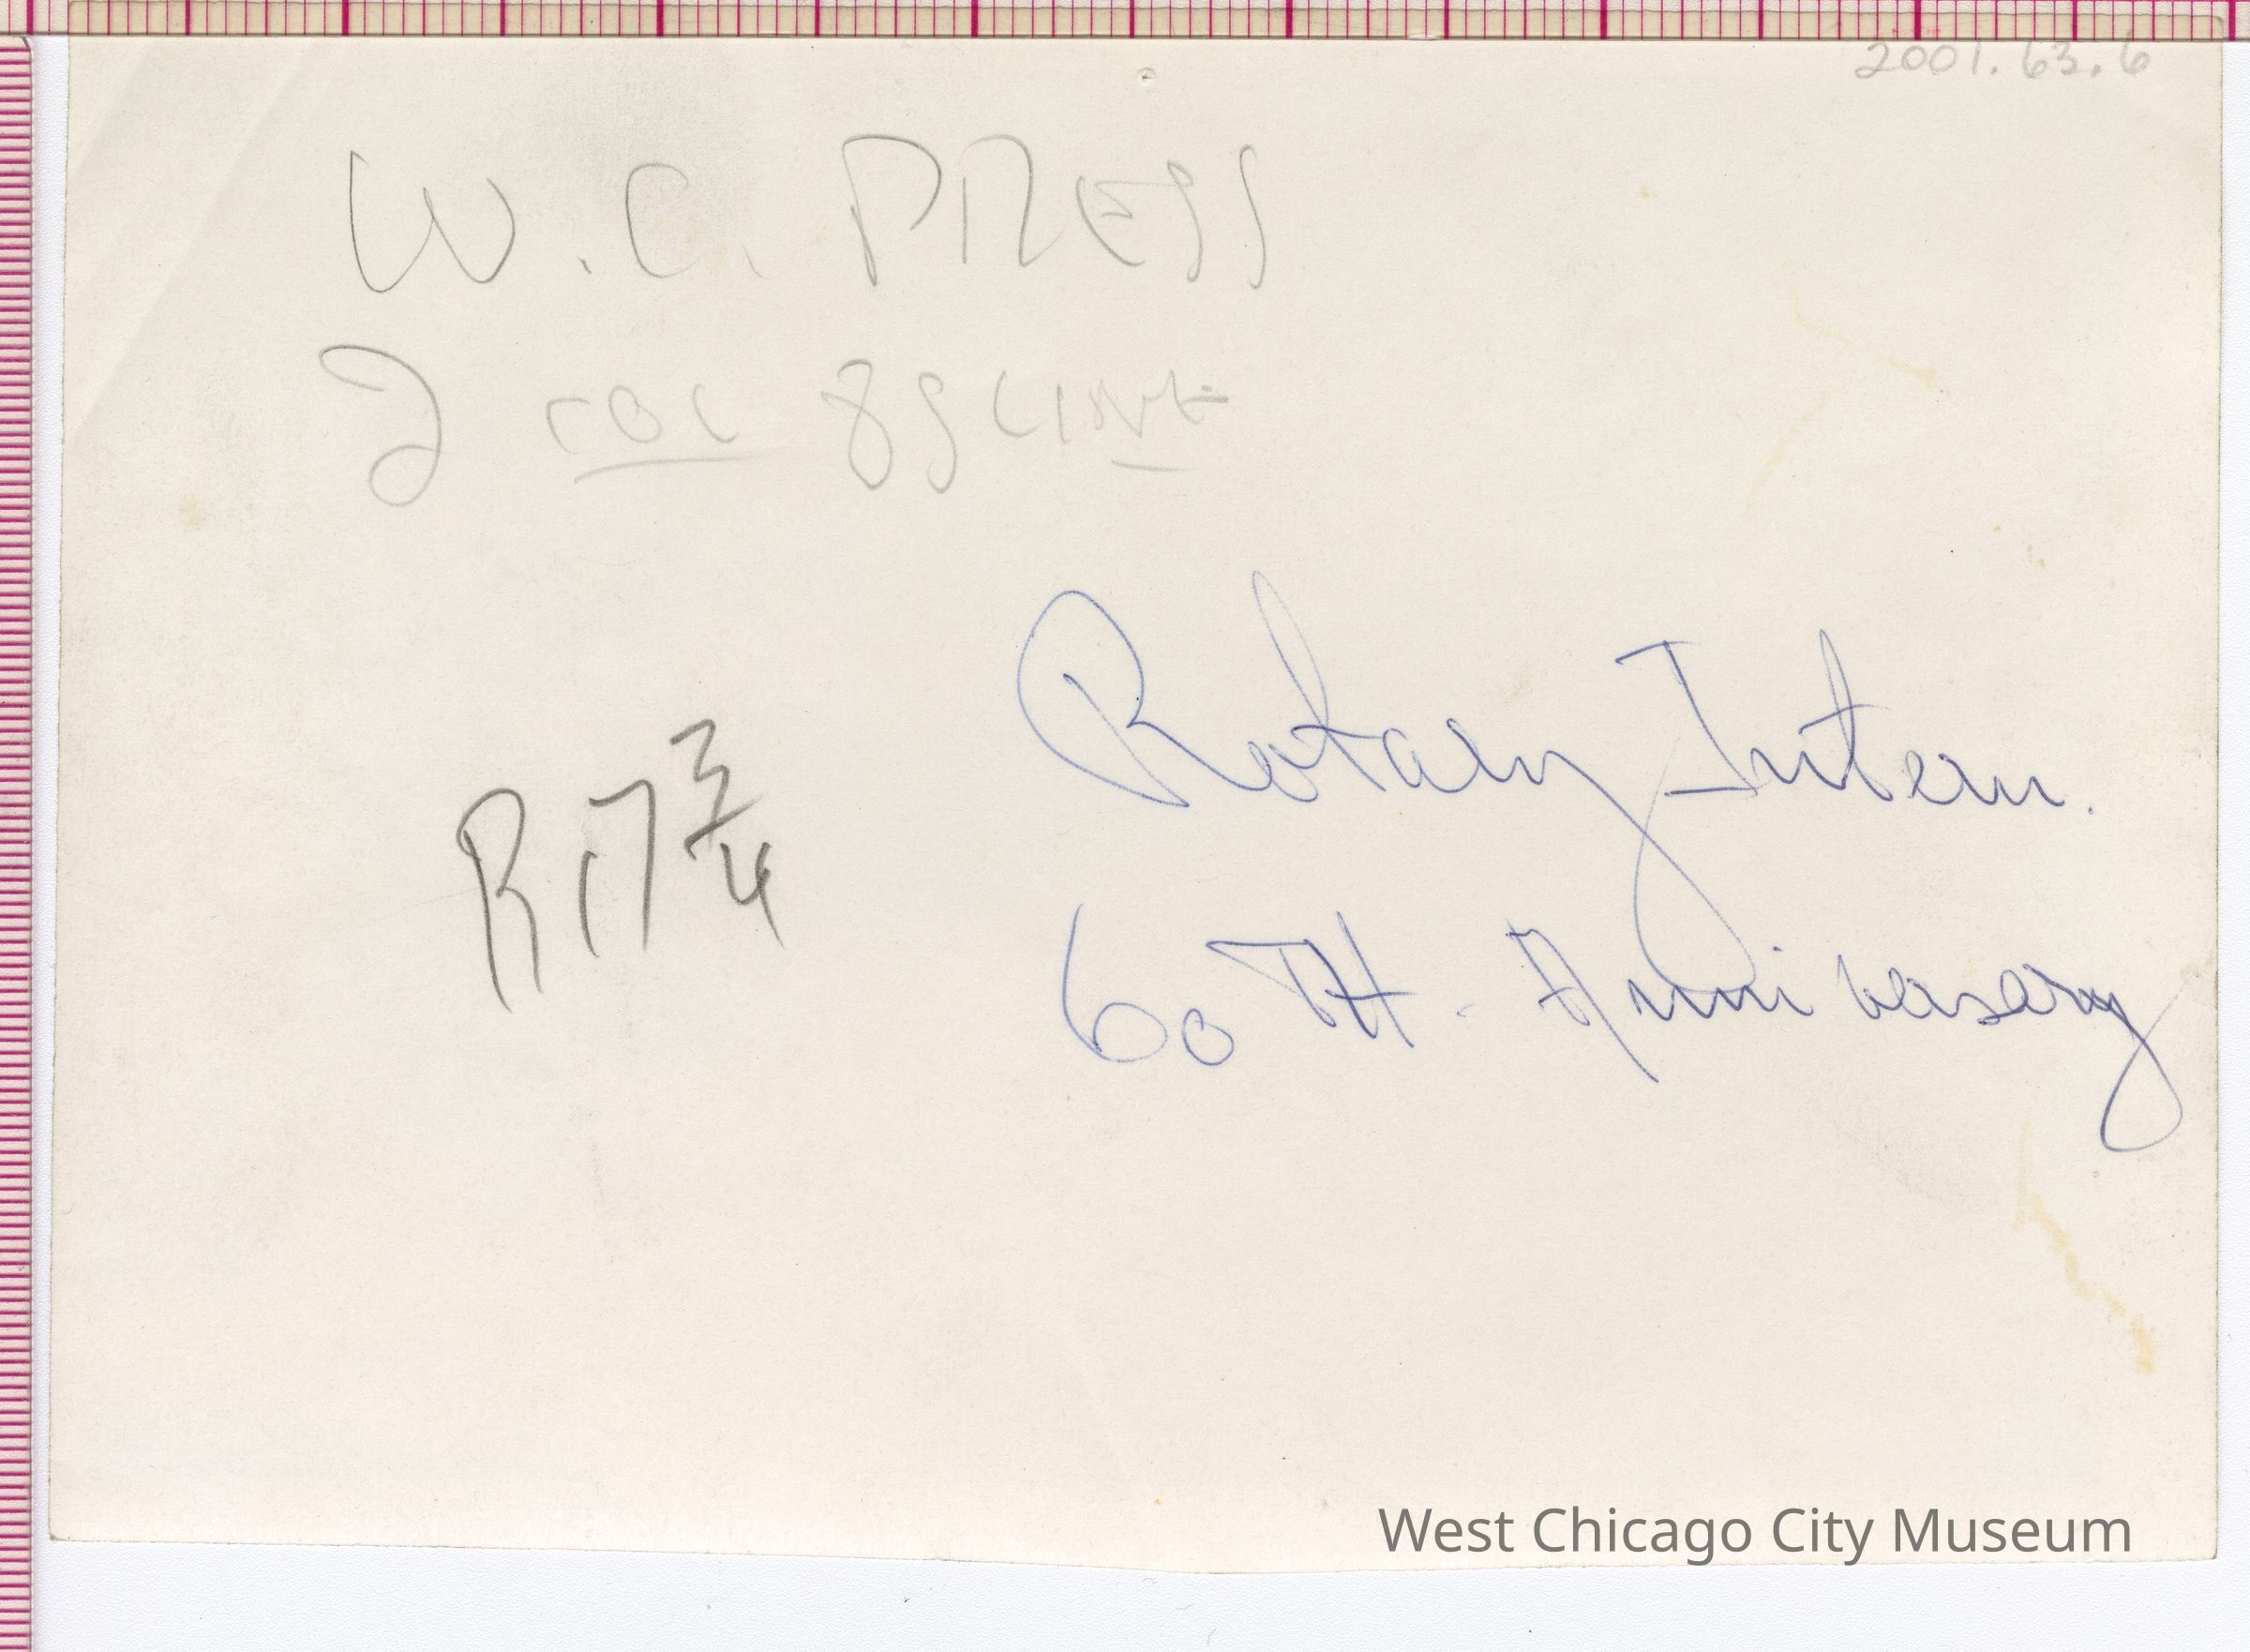 2001.63.6
W.C. PRESS
2 COL 85 LINE
R 17 3/4
Rotary Intern.
60TH. Anniversary
West Chicago City Museum